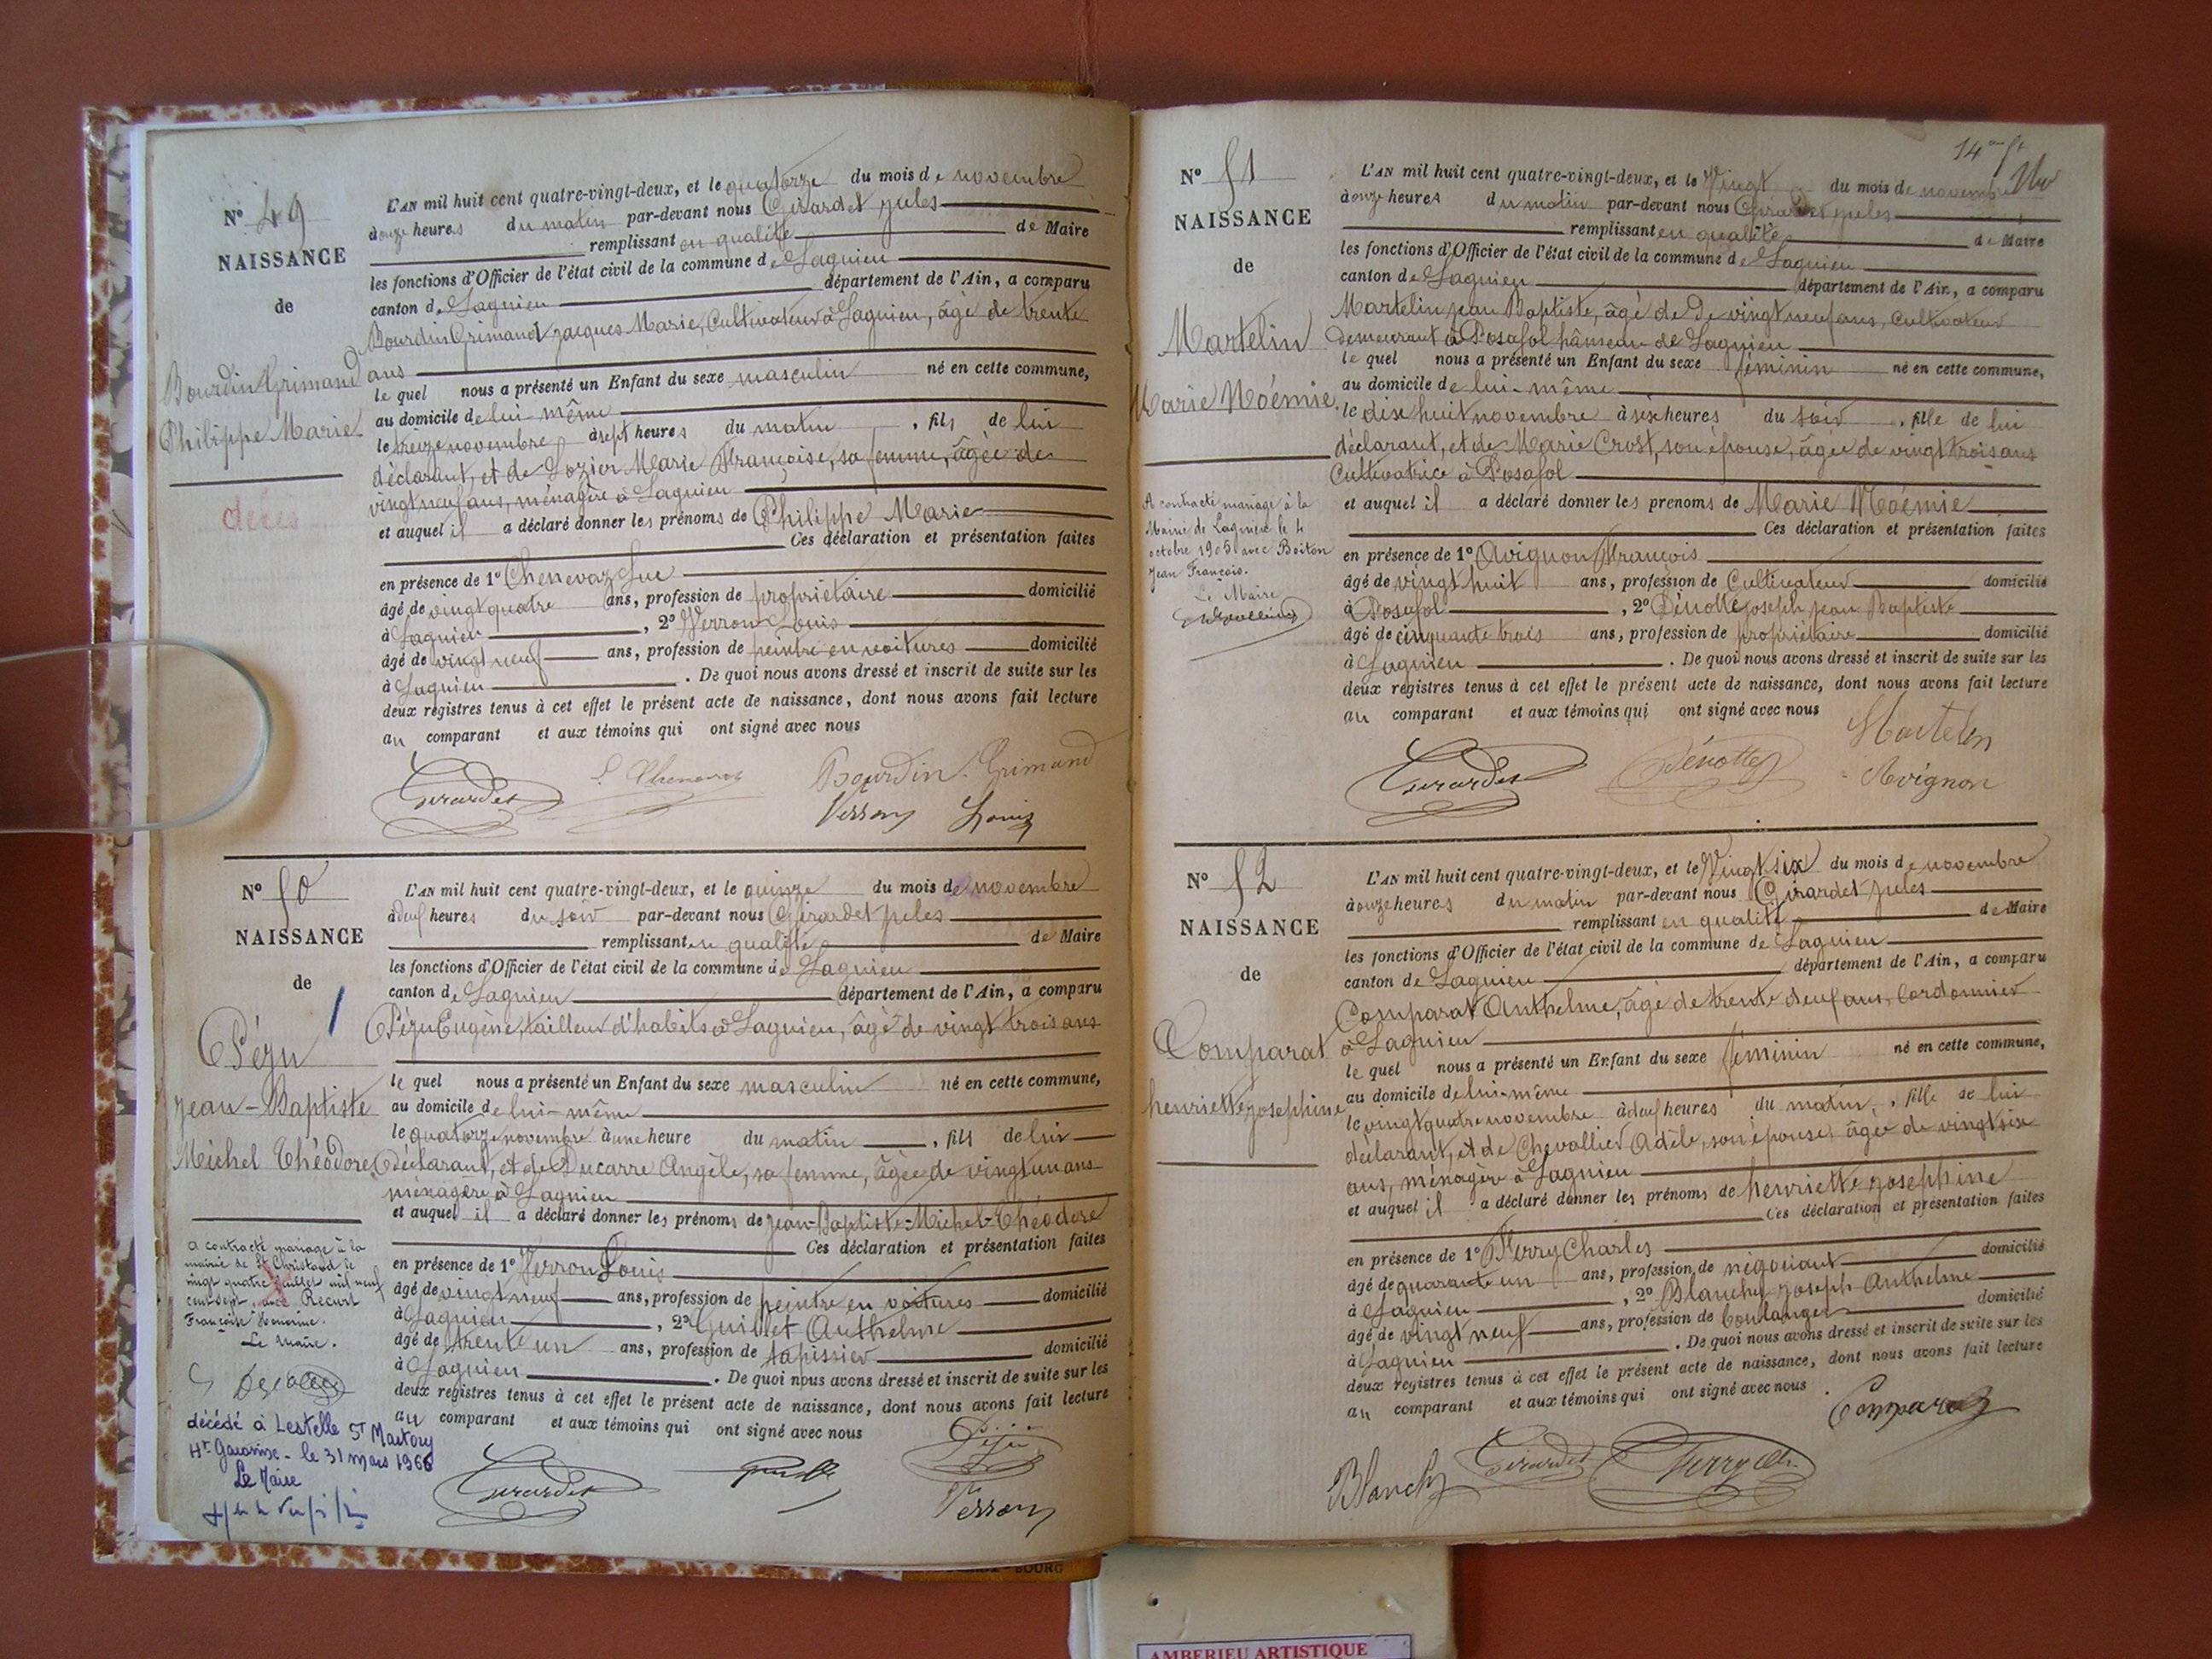 N° 49
NAISSANCE
de
Bourdin Grimaud
Philippe Marie
décès
L'AN mil huit cent quatre-vingt-deux, et le quatorze du mois de novembre
à onze heures du matin par-devant nous Girardet jules
remplissant en qualité de Maire
les fonctions d'Officier de l'état civil de la commune de Lagnieu
canton de Lagnieu département de l'Ain, a comparu
Bourdin Grimaud jacques Marie, Cultivateur à Lagnieu, âgé de trente
ans
le quel nous a présenté un Enfant du sexe masculin né en cette commune,
au domicile de lui même
le treize novembre à sept heures du matin, fils de lui
déclarant, et de Lozier Marie Françoise, sa femme, âgée de
vingt neuf ans, ménagère à Lagnieu
et auquel il a déclaré donner les prénoms de Philippe Marie
Ces déclaration et présentation faites
en présence de 1° Chenevaz Luc
âgé de vingt quatre ans, profession de propriétaire domicilié
à Lagnieu, 2° Verron Louis
âgé de vingt neuf ans, profession de peintre en voitures domicilié
à Lagnieu. De quoi nous avons dressé et inscrit de suite sur les
deux registres tenus à cet effet le présent acte de naissance, dont nous avons fait lecture
au comparant et aux témoins qui ont signé avec nous
Girardet L. Chenavaz Bourdin. Grimaud
Verron Louis
N° 50
NAISSANCE
de
Pézu
Jean-Baptiste
Michel Théodore
a contracté mariage à la
mairie de St Christaud le
vingt quatre juillet mil neuf
cent sept, avec Recurt
Françoise Honorine.
Le Maire.
décédé à Lestelle St Martory
Hte Garonne - le 31 mars 1966
Le Maire
L'AN mil huit cent quatre-vingt-deux, et le quinze du mois de novembre
à deux heures du soir par-devant nous Girardet jules
remplissant en qualité de Maire
les fonctions d'Officier de l'état civil de la commune de Lagnieu
canton de Lagnieu département de l'Ain, a comparu
Pézu Eugène, tailleur d'habits à Lagnieu, âgé de vingt trois ans
le quel nous a présenté un Enfant du sexe masculin né en cette commune,
au domicile de lui-même
le quatorze novembre à une heure du matin, fils de lui
déclarant, et de Ducarre Angèle, sa femme, âgée de vingt un ans
ménagère à Lagnieu
et auquel il a déclaré donner les prénoms de jean-Baptiste-Michel-Théodore
Ces déclaration et présentation faites
en présence de 1° Verron Louis
âgé de vingt neuf ans, profession de peintre en voitures domicilié
à Lagnieu, 2° Guillet Anthelme
âgé de trente un ans, profession de tapissier domicilié
à Lagnieu. De quoi nous avons dressé et inscrit de suite sur les
deux registres tenus à cet effet le présent acte de naissance, dont nous avons fait lecture
au comparant et aux témoins qui ont signé avec nous
Girardet Pézu
Verron
14
N° 51
NAISSANCE
de
Martelin
Marie Noémie
A contracté mariage à la
Mairie de Lagnieu le 4
octobre 1905 avec Boiton
Jean François.
Le Maire
L'AN mil huit cent quatre-vingt-deux, et le Vingt du mois de novembre
à onze heures du matin par-devant nous Girardet jules
remplissant en qualité de Maire
les fonctions d'Officier de l'état civil de la commune de Lagnieu
canton de Lagnieu département de l'Ain, a comparu
Martelin jean Baptiste, âgé de De vingt neuf ans, Cultivateur
demeurant à Posafol hâmeau de Lagnieu
le quel nous a présenté un Enfant du sexe féminin né en cette commune,
au domicile de lui-même
le dix huit novembre à six heures du soir, fille de lui
déclarant, et de Marie Crost, son épouse, âgée de vingt trois ans
Cultivatrice à Posafol
et auquel il a déclaré donner les prenoms de Marie Noémie
Ces déclaration et présentation faites
en présence de 1° Avignon François
âgé de vingt huit ans, profession de Cultivateur domicilié
à Posafol, 2° Dénotte joseph jean Baptiste
âgé de cinquante trois ans, profession de propriétaire domicilié
à Lagnieu. De quoi nous avons dressé et inscrit de suite sur les
deux registres tenus à cet effet le présent acte de naissance, dont nous avons fait lecture
au comparant et aux témoins qui ont signé avec nous
Girardet Dénotte Martelin
Avignon
N° 52
NAISSANCE
de
Comparat
henriette josephine
L'AN mil huit cent quatre-vingt-deux, et le Vingt six du mois de novembre
à onze heures du matin par-devant nous Girardet jules
remplissant en qualité de Maire
les fonctions d'Officier de l'état civil de la commune de Lagnieu
canton de Lagnieu département de l'Ain, a comparu
Comparat Anthelme, âgé de trente deux ans, Cordonnier
à Lagnieu
le quel nous a présenté un Enfant du sexe féminin né en cette commune,
au domicile de lui-même
le vingt quatre novembre à deux heures du matin, fille de lui
déclarant, et de Chevallier Adèle, son épouse, âgée de vingt six
ans, ménagère à Lagnieu
et auquel il a déclaré donner les prénoms de henriette josephine
Ces déclaration et présentation faites
en présence de 1° Ferry Charles
âgé de quarante un ans, profession de négociant domicilié
à Lagnieu, 2° Blanchy joseph Anthelme
âgé de vingt neuf ans, profession de boulanger domicilié
à Lagnieu. De quoi nous avons dressé et inscrit de suite sur les
deux registres tenus à cet effet le présent acte de naissance, dont nous avons fait lecture
au comparant et aux témoins qui ont signé avec nous.
Comparat
Blanchy Girardet Ferry Ch.
BOURG
AMBERIEU ARTISTIQUE